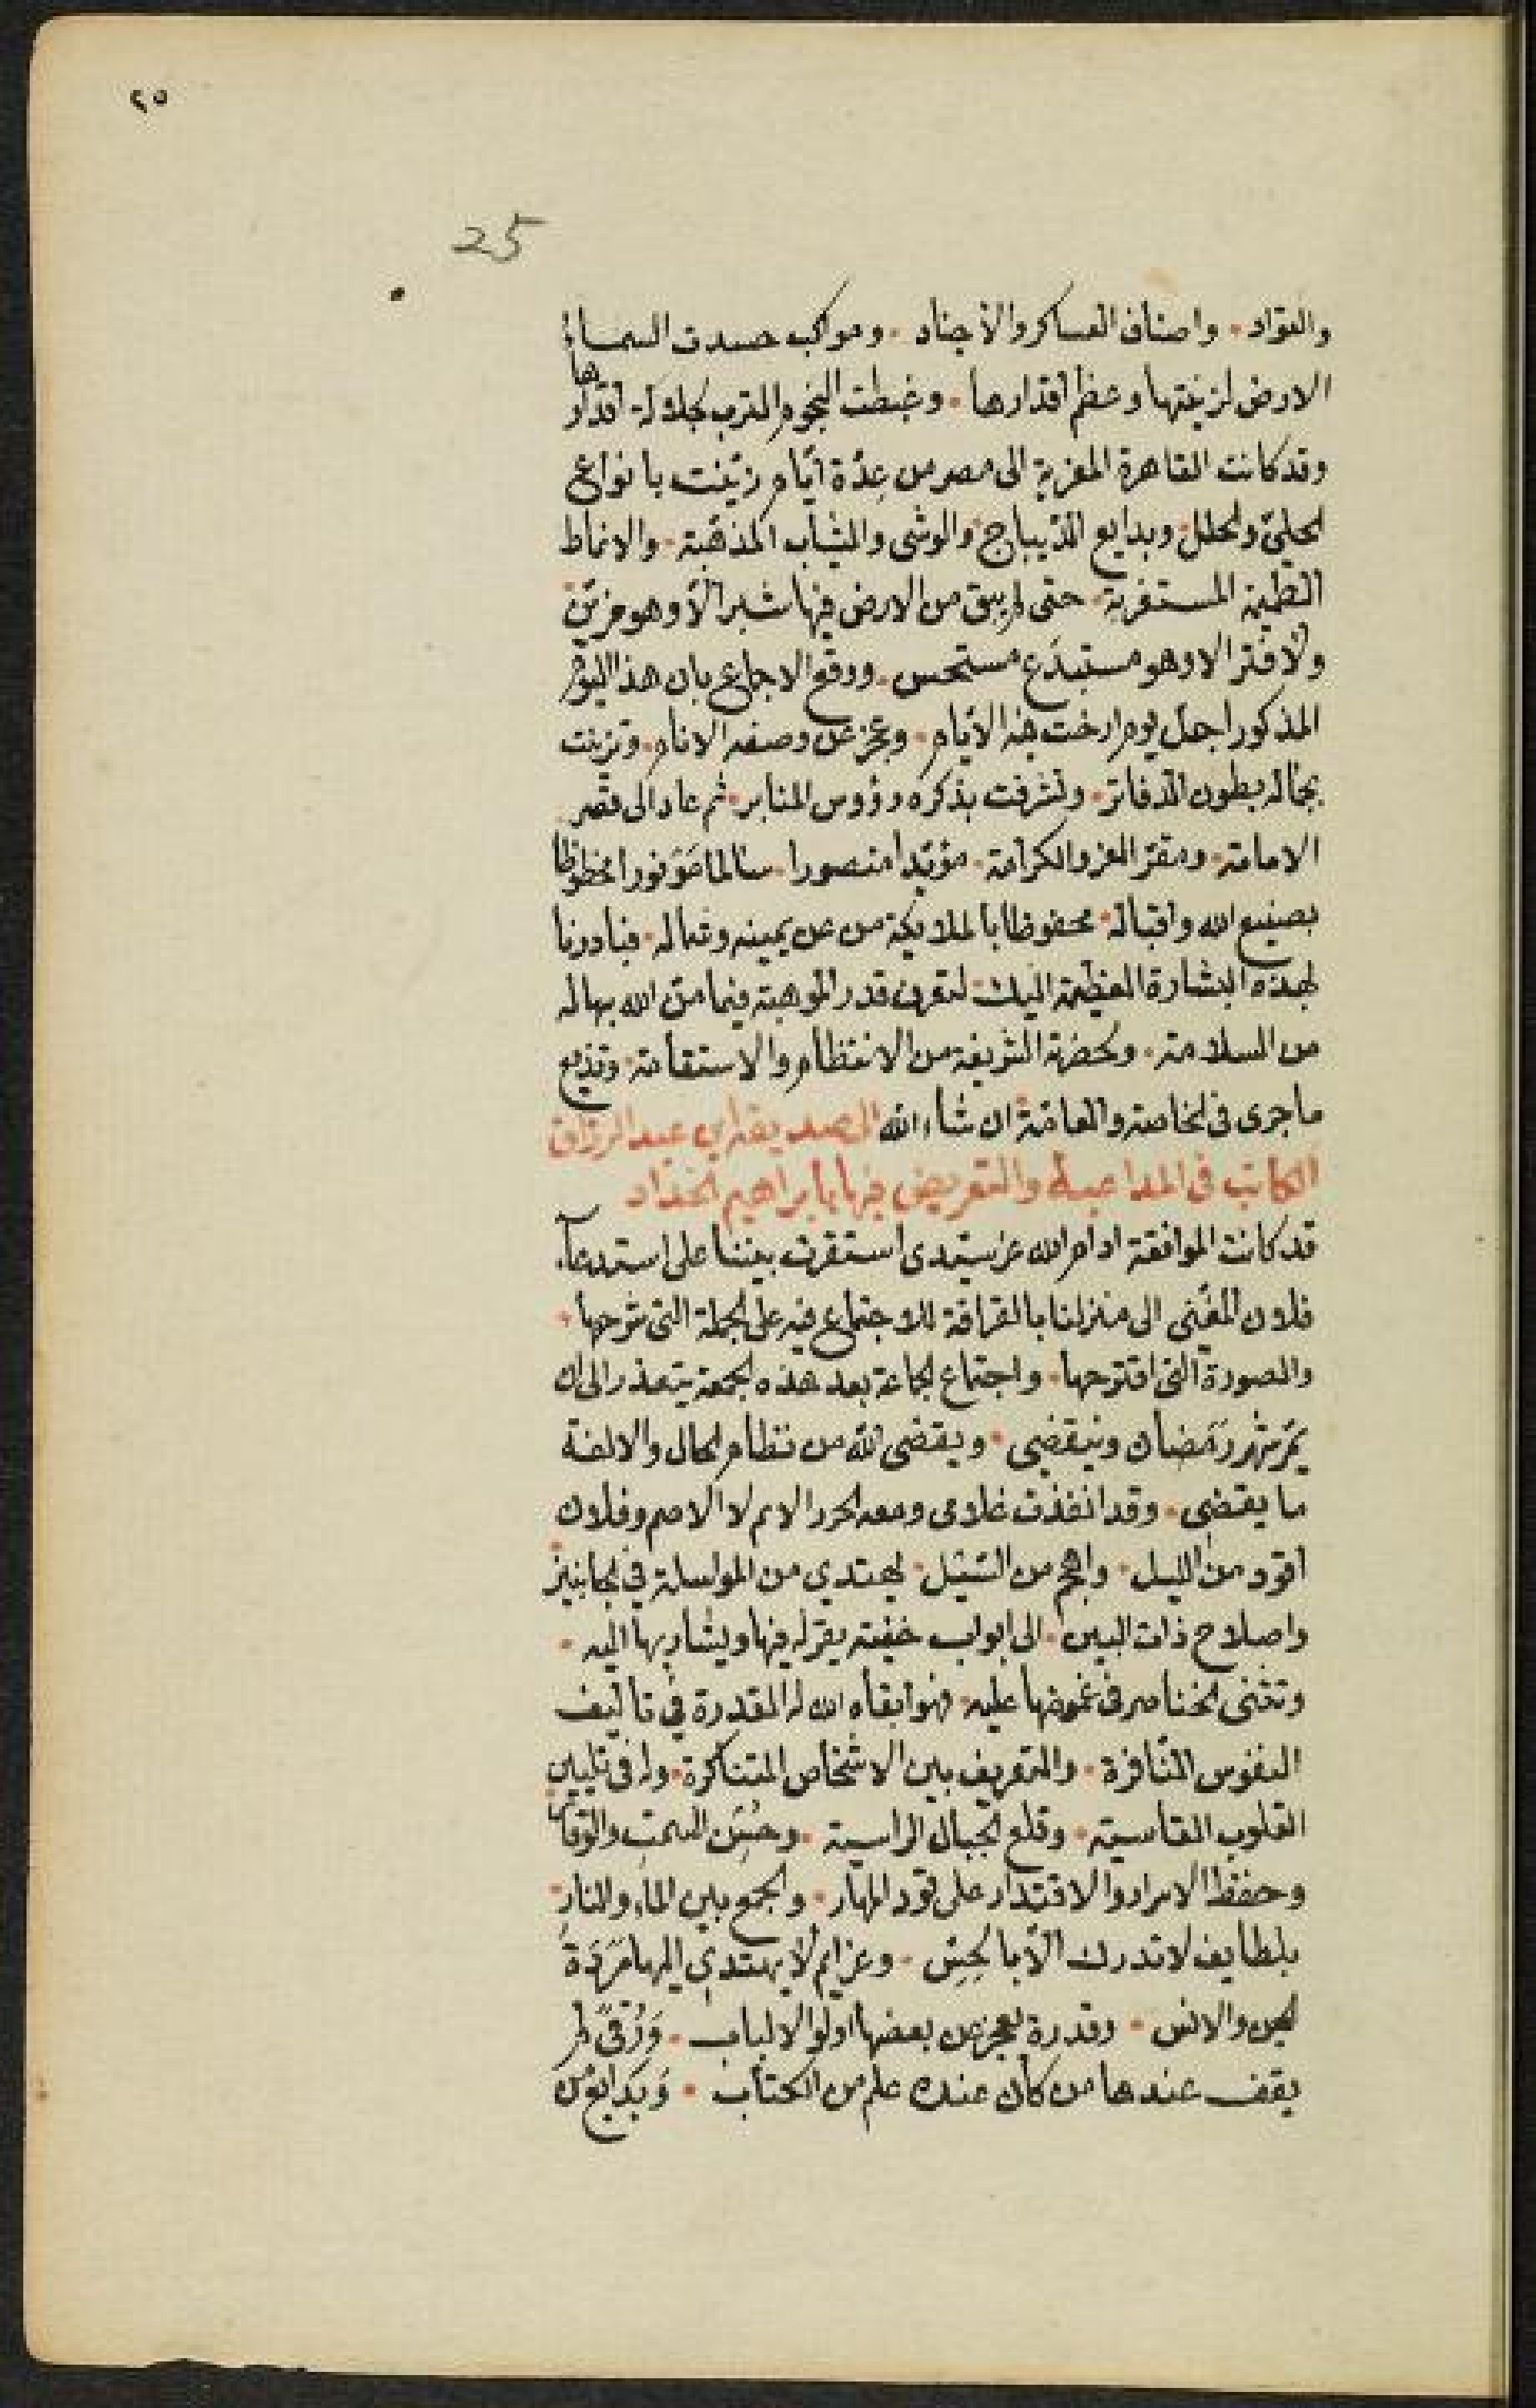 ٢٥
25
والقواد · واصناف العساكر والأجناد · ومواكب حسدت السماء
الارض لزينتها وعظم أقدارها · وغبطت النجوم الترب لجلالة أقدارها
وقد كانت القاهرة المعزية الى مصر من عدّة أيّام زيّنت بانواع
الحليّ والحلل · وبدايع الذيباج والوشى والثياب المذهّبة · والانماط
العظيمة المستغربة · حتى لم يبق من الارض فيها شبر الّا وهو مزيّن
ولا فتر الا وهو مستبدع مستحسن · ووقع الاجماع بان هذا اليوم
المذكور اجمل يوم ارخت به الأيام · وعجز عن وصفه الانام · وتزينت
بجماله بطون الدفاتر · وتشرفت بذكره رؤوس المنابر · ثم عاد الى قصر
الامامة · ومقرّ العز والكرامة · مؤيّدا منصورا · سالما موفورا محظوظا
بصنيع الله واقباله · محفوظا بالملايكة من عن يمينه وشماله · فبادرنا
بهذه البشارة العظيمة اليك · لتعرف قدر الموهبة فيما منّ الله بها له
من السلامة · ولحضرته الشريفة من الانتظام والاستقامة · وتذيع
ما جرى فى الخاصة والعامّة ان شاء الله الى صديقه ابى عبد الرزاق
الكاتب فى المداعبة والتعريض فيها بابراهيم الحداد
قد كانت الموافقة ادام الله عز سيّدى استقرت بيننا على استدعاء
فلان المغنى الى منزلنا بالقرافة للاجتماع فيه على الجملة التى شرحها ·
والصورة التى اقترحها · واجتماع الجماعة بعد هذه الجمعة يتعذر الى ان
يمرّ شهر رمضان وينقضي · ويقضى الله من نظام الحال والالفة
ما يقتضي · وقد انفذت غلامى ومعه الحرر الاعم لا الاصم وفلان
أقود من الليل · واهجم من السّيل · يهتدي من المواسلة فى الجانبين
واصلاح ذات البين · الى ابواب خفيّة يقرّ له فيها ويشار بها اليه ·
وتثنى الخناصر فى غموضها عليه · فهو ابقاه الله له المقدرة في تاليف
النفوس المنافرة · والتعريف بين الاشخاص المتناكرة · وله فى تليين
القلوب القاسية · وقلع الجبال الراسية · وحسن السمت والوقار
وحفظ الاسرار والاقتدار على قود المهار · والجمع بين الماء والنار ·
بلطايف لا تدرك الّا بالحسّ · وعزايم لا يهتدي اليها مردة
الجن والانس · وقدرة يعجز عن بعضها اولوا الالباب · ورقىً لم
يقف عندها من كان عنده علم من الكتاب · وبدايع من